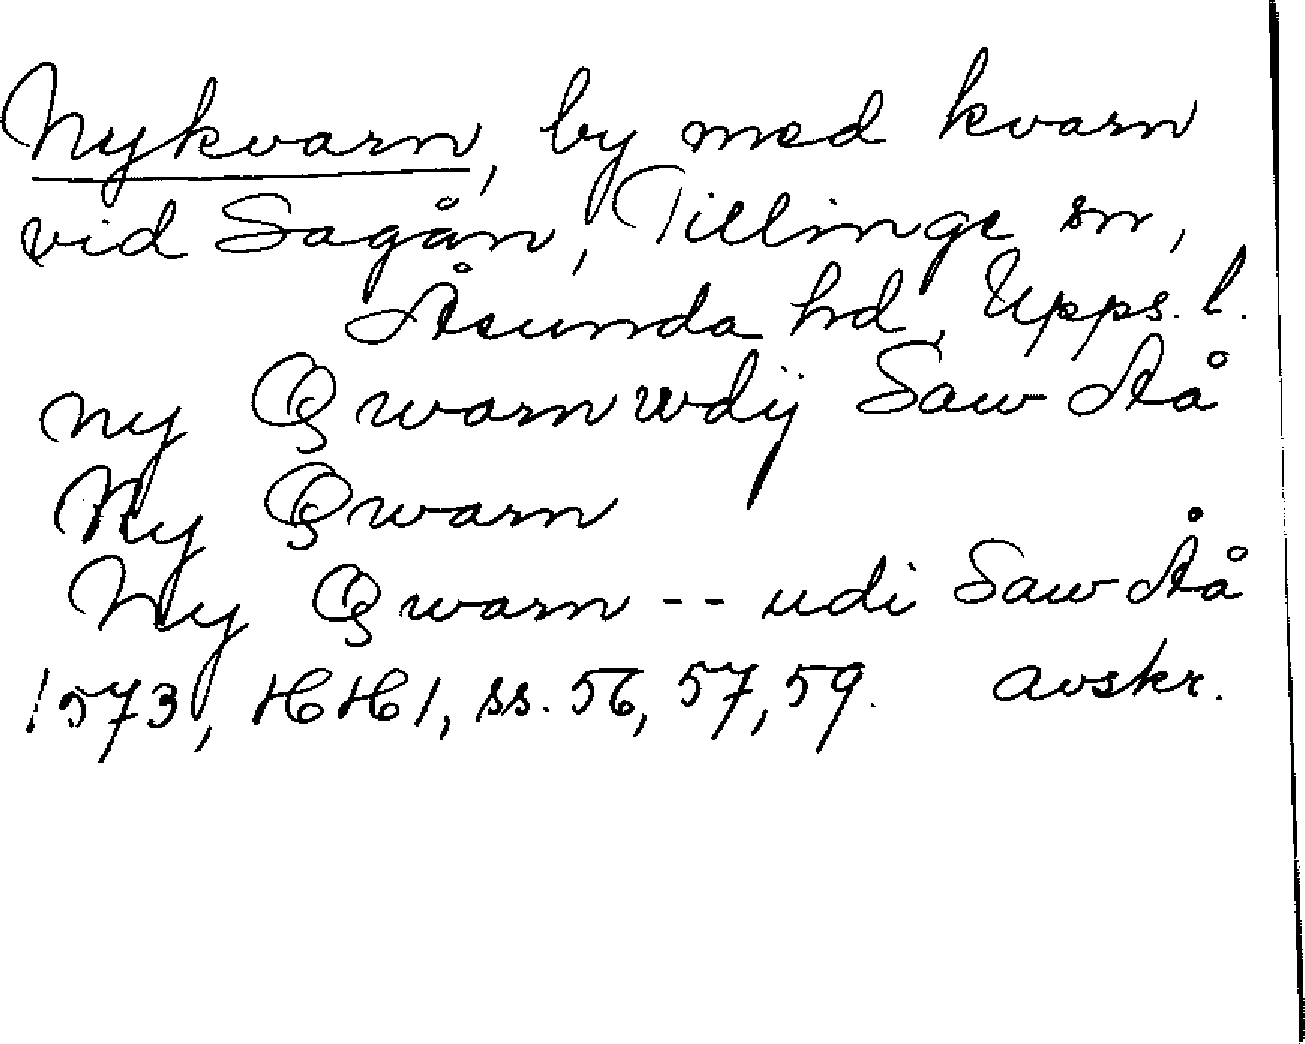 Nykvarn, by med kvarn
vid Sagån, Tillinge sn,
Åsunda hd, Upps. l.
ny Qwarn wdij Saw Aå
Ny Qwarn
Ny Qwarn -- udi Saw Åå
1573, HH1, ss. 56, 57, 59. avskr.